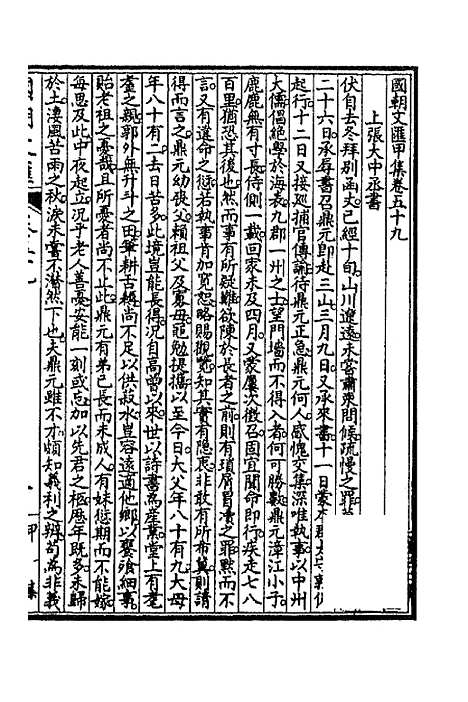 國朝文匯甲集卷五十九
上張大中丞書
伏自去冬拜別函丈已經十旬山川遼遠未容肅柬問候疏慢之罪
二十六日承辱書召鼎元即赴三山三月九日又承來書十一日蒙本郡太守
起行十二日又接巡捕官傳諭待鼎元正急鼎元何人感愧交集深唯執事以中州
大儒倡絕學於海表九郡一州之士望門牆而不得入者何可勝數鼎元漳江小子
鹿鹿無有寸長侍側一載回家未及四月又蒙屢次徵召固宜聞命即行疾走七八
百里猶恐其後也然而事有所疑難欲陳於長者之前則有瑣屑冒瀆之罪默而不
言又有違命之愆若執事肯加寬恕略賜觀覽知其實有隱衷非敢有所希冀則請
得而言之鼎元幼喪父賴祖父及寡母黽勉提攜以至今日大父年八十有九大母
年八十有二去日苦多此境豈能長得況自高曾以來世以詩書為產業堂上有耄
耋之親郭外無升斗之田筆耕古籍尚不足以供菽水豈容遠適他鄉以饔飧細事
貽老祖之憂哉且所憂者尚不止此鼎元有弟已長而未成人有妹愆期而不能嫁
每思及此中夜起立況乎老人善憂安能一刻或忘加以先君之柩歷年既多未歸
於土淒風苦雨之秋淚未嘗不潸然下也夫鼎元雖不才頗知義利之辨苟為非義